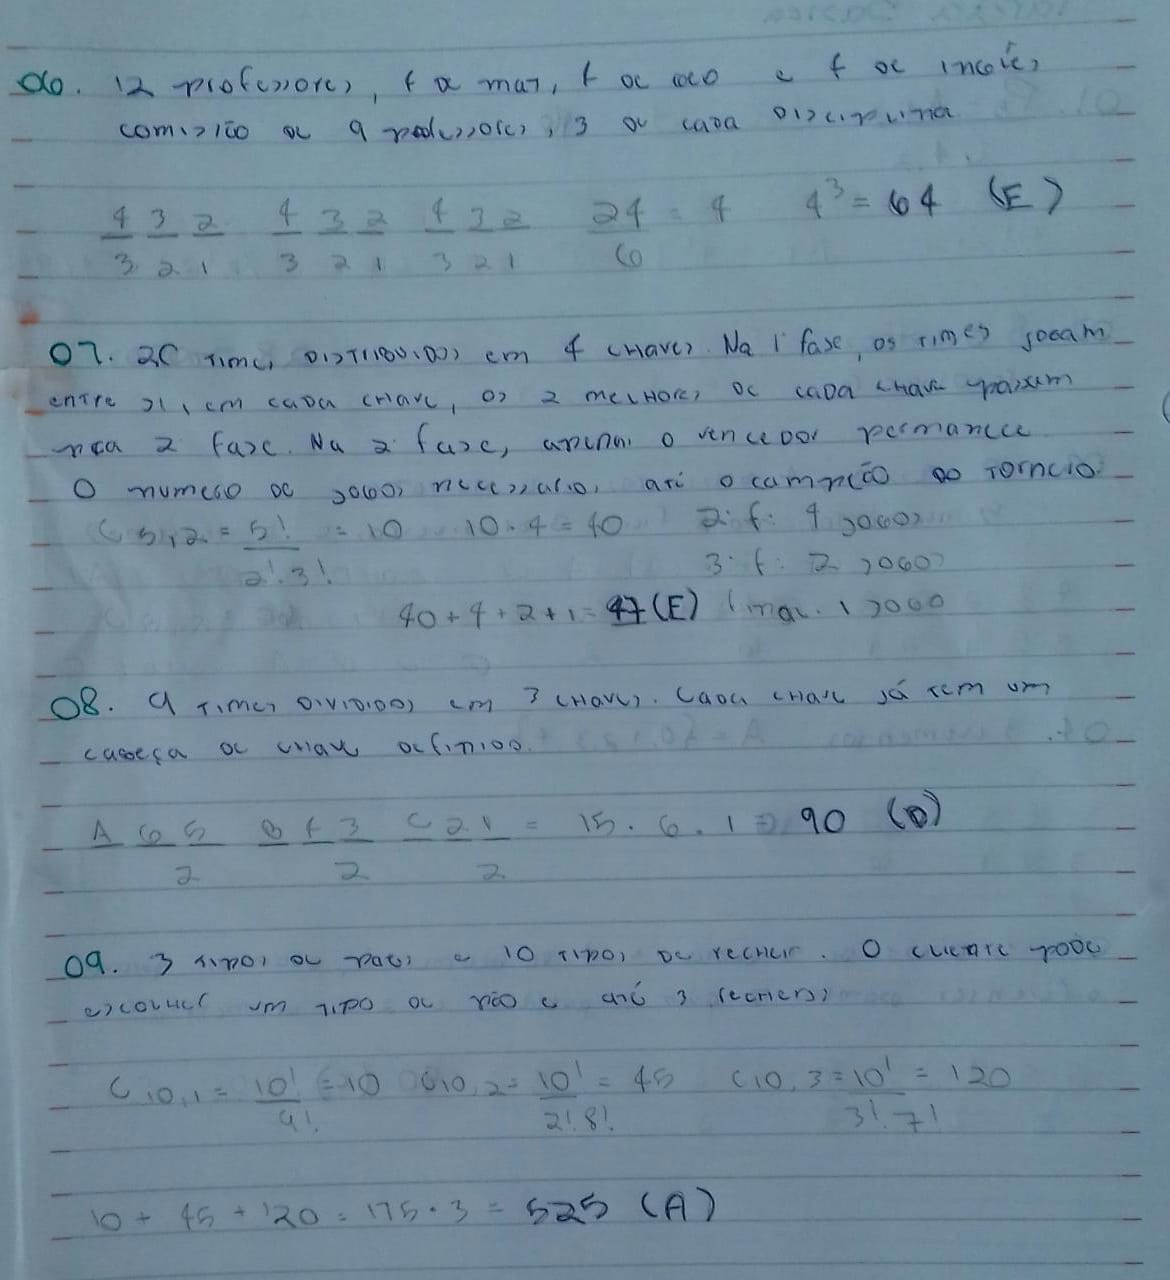 06. 12 professores, 4 de mat, 4 de geo e 4 de inglês,
comissão de 9 professores, 3 de cada disciplina
4 3 2 4 3 2 4 3 2 24 = 4 4³ = 64 (E)
3 2 1 3 2 1 3 2 1 6
07. 20 times distribuidos em 4 chaves. Na 1ª fase, os times jogam
entre si, em cada chave, os 2 melhores de cada chave passam
2 fase. Na 2ª fase, apenas o vencedor permanece
O numero de jogos necessarios, até o campeão do torneio
C 5,2 = 5! = 10 10 . 4 = 40 2ª f: 4 jogos
2! . 3! 3ª f: 2 jogos
40 + 4 + 2 + 1 = 47 (E) 1 jogo
08. 9 times divididos em 3 chaves. Cada chave já tem um
cabeça de chave definido.
A 6 5 B 4 3 C 2 1 = 15 . 6 . 1 = 90 (D)
2 2 2
09. 3 tipos de pães e 10 tipos de recheio. O cliente pode
escolher um tipo de pão e até 3 recheios
C 10,1 = 10! = 10 C10,2 = 10! = 45 C10,3 = 10! = 120
9! 2! 8! 3! . 7!
10 + 45 + 120 = 175 . 3 = 525 (A)